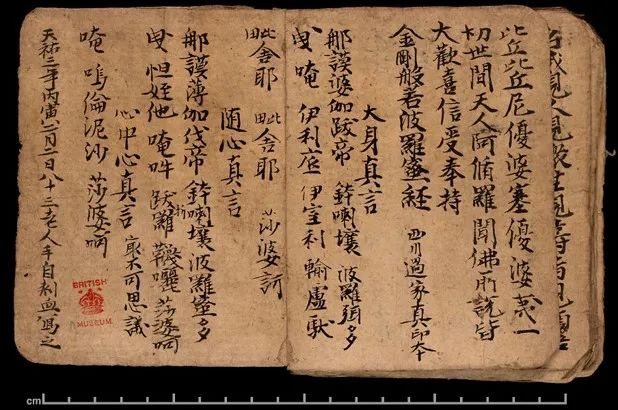 比丘比丘尼優婆塞優婆夷一
切世間天人阿脩羅聞佛所說皆
大歡喜信受奉持
金剛般若波羅蜜經 西川過家真印本
大身真言
那謨婆伽跋帝 鉢喇壤 波羅弭多
曳 唵 伊利底 伊室利 輸盧馱
毗舍耶 毗舍耶 莎婆訶
随心真言
那謨薄伽伐帝 鉢喇壤 波羅蜜多
曳 怛姪他 唵 吽 莎婆訶
心中心真言 最不可思議
唵 嗚倫泥沙 莎婆訶
天祐三年丙寅二月二日八十三老人手自刺血寫之
BRITISH
MUSEUM
cm